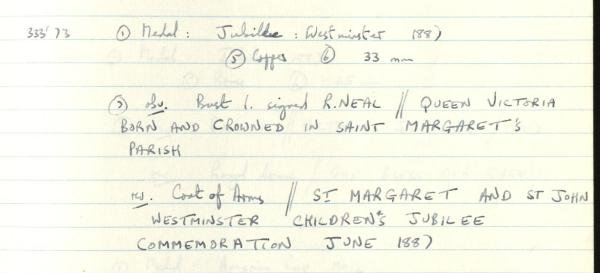 333'73 ① Medal: Jubilee: Westminster 1887
⑤ Copper ⑥ 33 mm
③ obv. Bust l. signed R.NEAL // QUEEN VICTORIA
BORN AND CROWNED IN SAINT MARGARET'S
PARISH
rev. Coat of Arms // ST MARGARET AND ST JOHN
WESTMINSTER CHILDREN'S JUBILEE
COMMEMORATION JUNE 1887